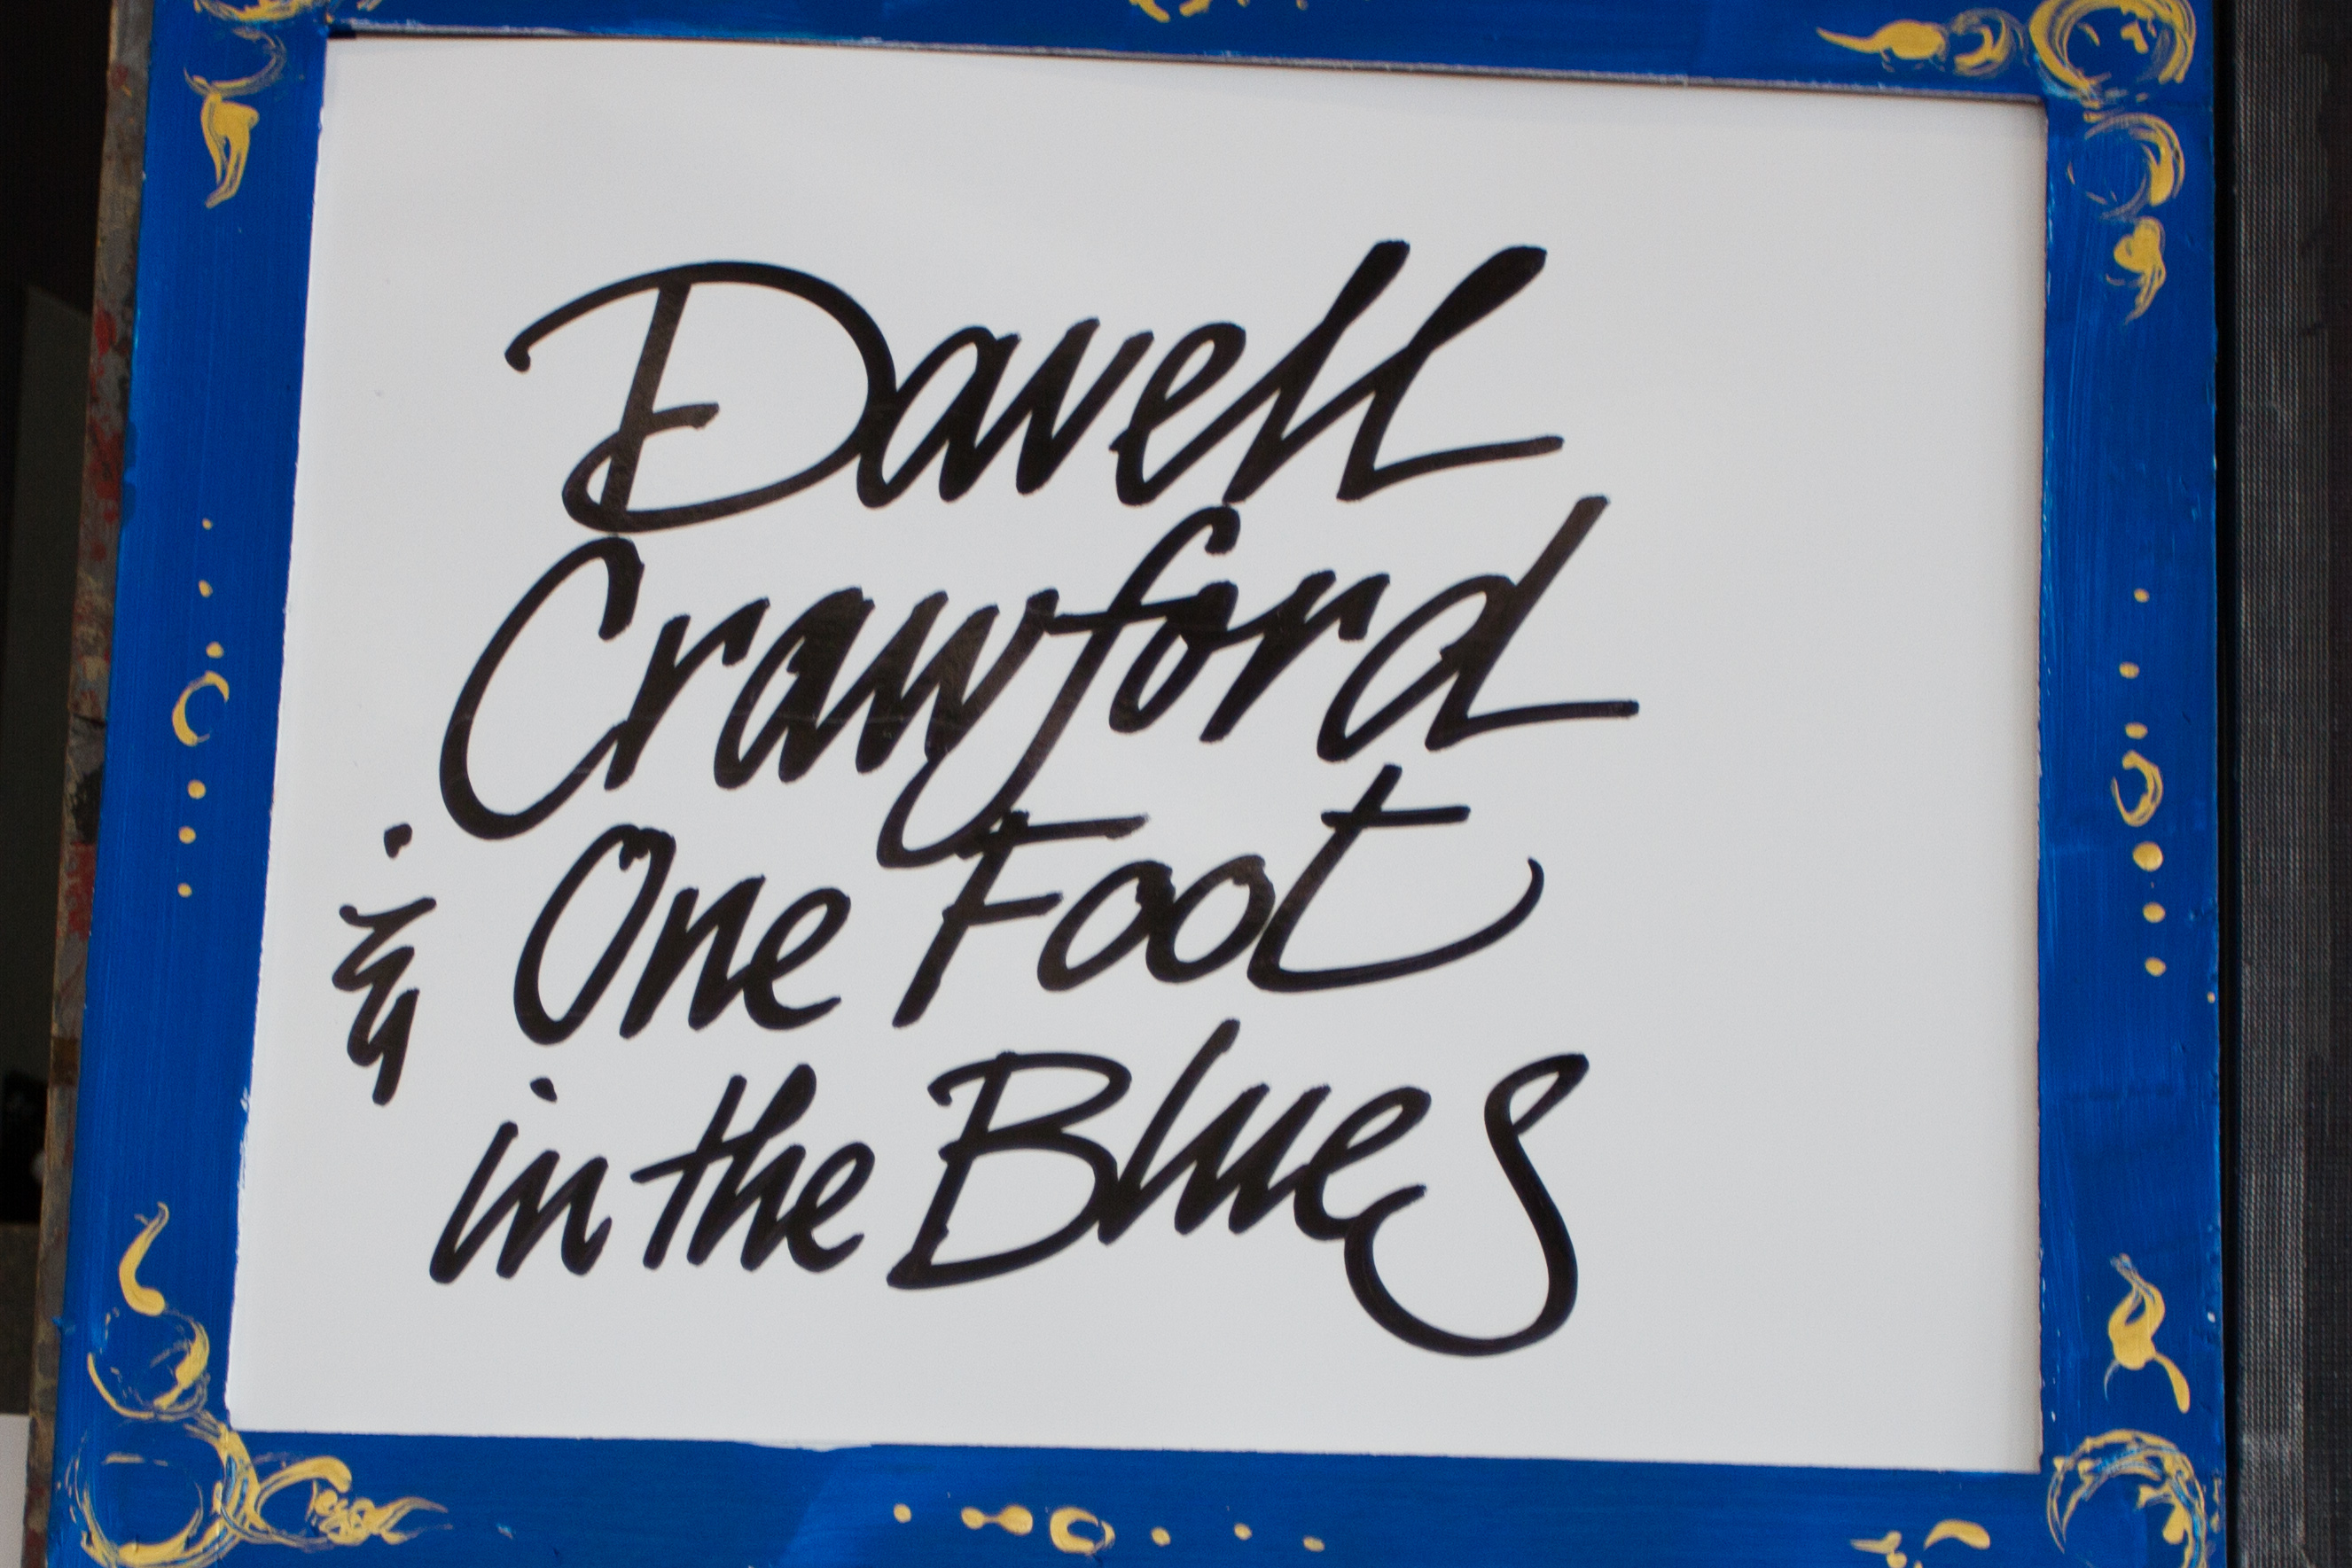 Davell
Crawford
One Foot
in the Blues